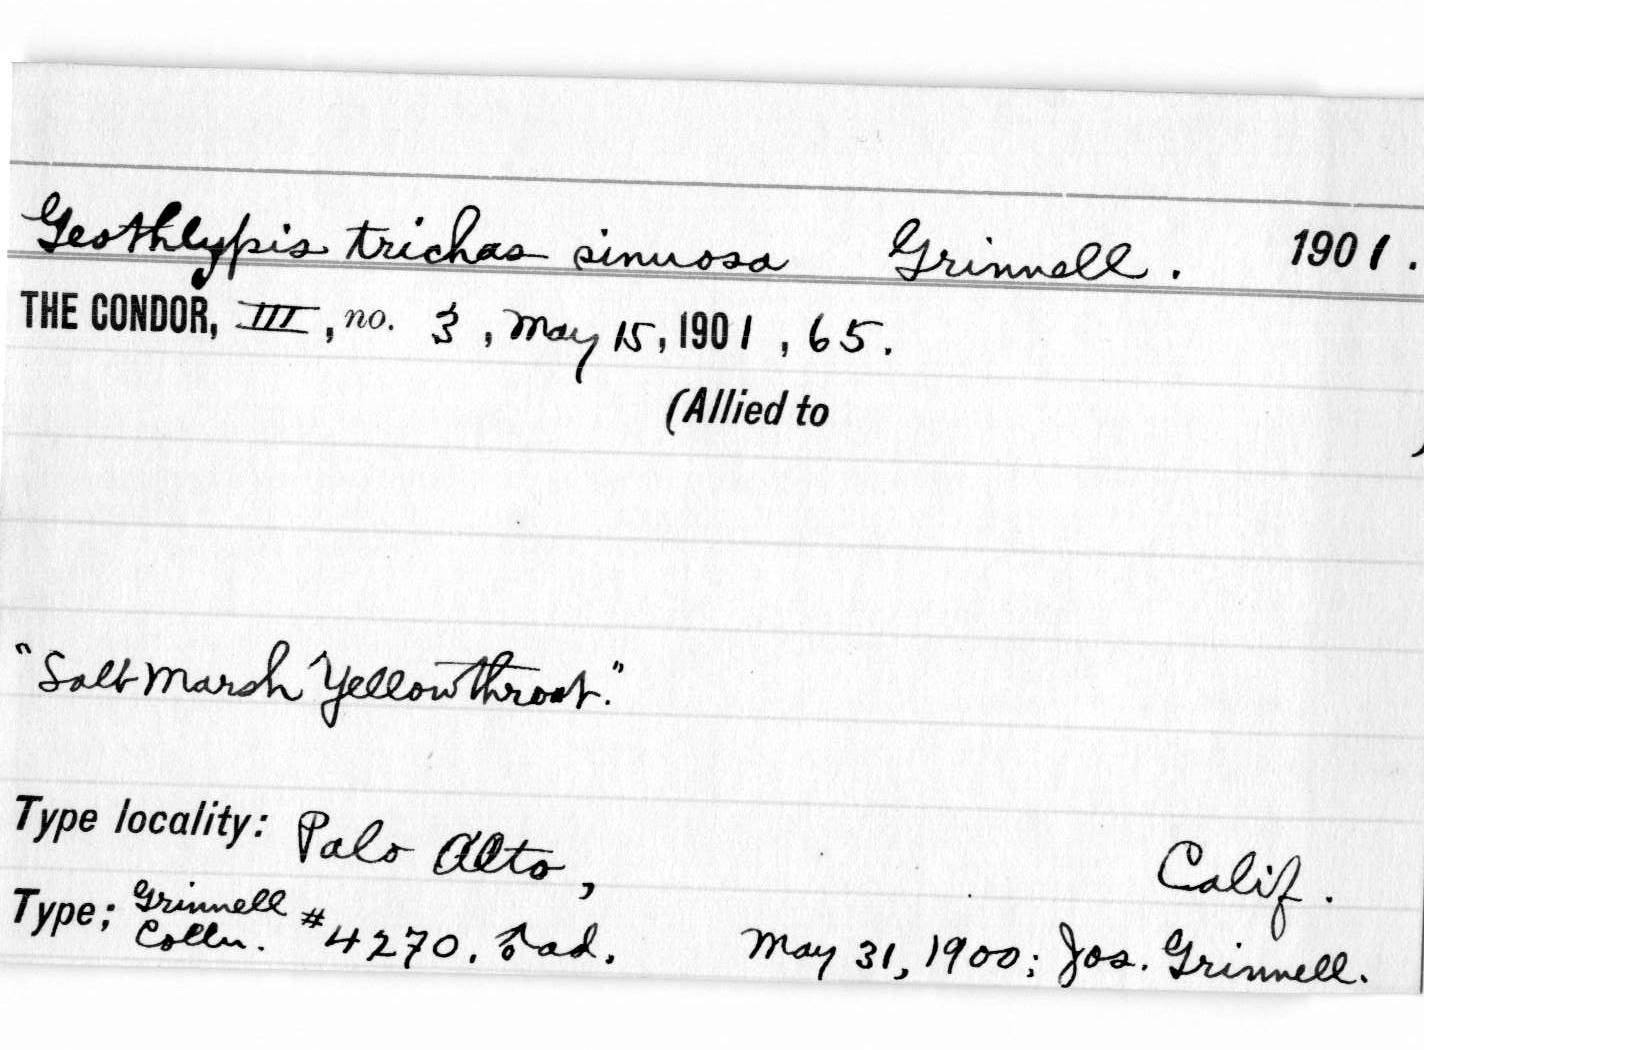 Geothlypis trichas sinuosa Grinnell. 1901.
THE CONDOR, III, no. 3, May 15, 1901, 65.
(Allied to )
"Salt Marsh Yellowthroat."
Type locality: Palo Alto, Calif.
Type; Grinnell Colln. #4270. ♂ ad. May 31, 1900; Jos. Grinnell.